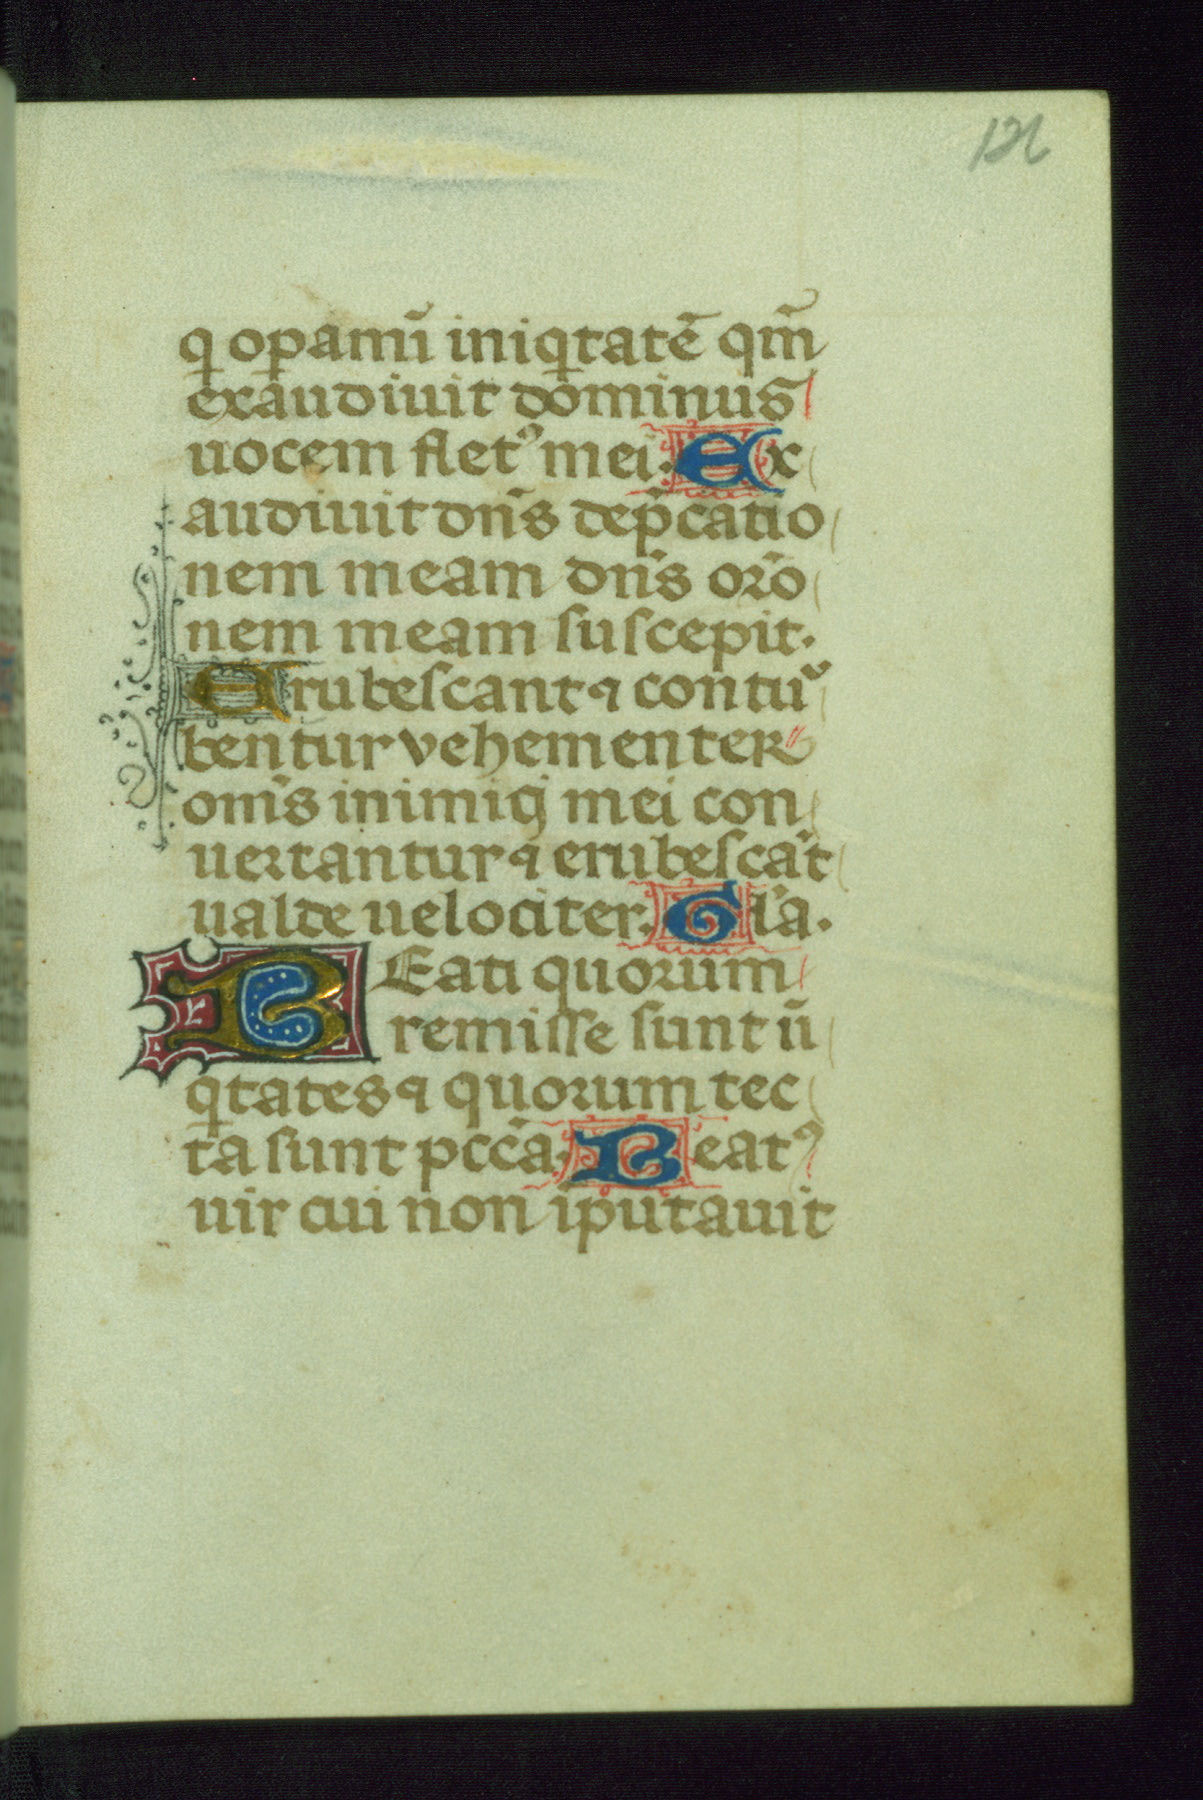 121
q opamĩ iniqtatẽ qm̃
exaudiuit dominus
uocem fletꝰ mei. Ex
audiuit dñs dep̃catio
nem meam dñs orõ
nem meam suscepit.
Erubescant ⁊ contuꝰ
bentur vehementer
om̃s inimici mei con
uertantur ⁊ erubescãt
ualde uelociter. Gl'a.
BEati quorum
remisse sunt ũ
qtates ⁊ quorum tec
ta sunt pcc̃a. Beatꝰ
uir cui non ĩputauit